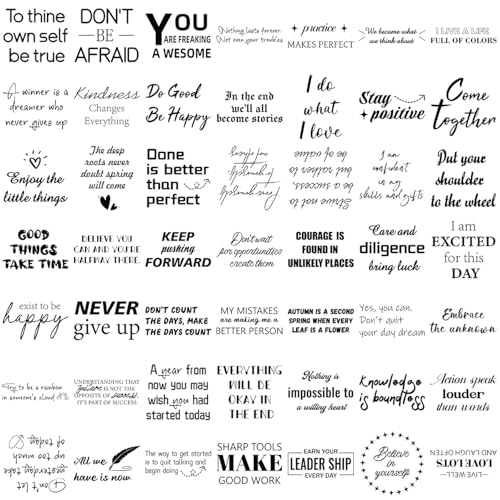 To thine
own self
be true
DON'T
BE
AFRAID
YOU
ARE FREAKING
A WESOME
Nothing lasts forever.
Not even your troubles
practice
MAKES PERFECT
We become what
we think about
I LIVE A LIFE
FULL OF COLORS
A winner is a
dreamer who
never gives up
Kindness
Changes
Everything
Do Good
Be Happy
In the end
we'll all
become stories
I do
what
I love
Stay
positive
Come
together
Enjoy the
little things
The deep
roots never
doubt spring
will come
Done
is better
than
perfect
Strive not to
be a success,
but rather to
be of value
I am
confident
in my
skills and gifts
Put your
shoulder
to the wheel
GOOD
THINGS
TAKE TIME
BELIEVE YOU
CAN AND YOU'RE
HALFWAY THERE.
KEEP
pushing
FORWARD
Don't wait
for opportunities
create them
COURAGE IS
FOUND IN
UNLIKELY PLACES
Care and
diligence
bring luck
I am
EXCITED
for this
DAY
exist to be
happy
NEVER
give up
DON'T COUNT
THE DAYS, MAKE
THE DAYS COUNT
MY MISTAKES
are making me a
BETTER PERSON
AUTUMN IS A SECOND
SPRING WHEN EVERY
LEAF IS A FLOWER
Yes, you can.
Don't quit
your day dream
Embrace
the unknown
Try to be a rainbow
in someone's cloud
UNDERSTANDING THAT
failure IS NOT THE
OPPOSITE OF success,
IT'S PART OF SUCCESS
A year from
now you may
wish you had
started today
EVERYTHING
WILL BE
OKAY IN
THE END
Nothing is
impossible to
a willing heart
Knowledge
is boundless
Action speak
louder
than words
Don't let
yesterday take
up too much
of today
All we
have is now
The way to get started
is to quit talking and
begin doing
SHARP TOOLS
MAKE
GOOD WORK
EARN YOUR
LEADER SHIP
EVERY DAY
Believe
in yourself
LIVE WELL
LOVE LOTS
AND LAUGH OFTEN